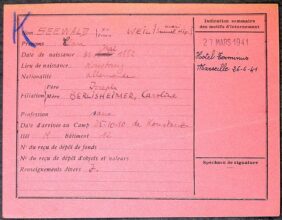 K
Nom SEEWALD née WEIL
Indication sommaire des motifs d'internement
Prénoms
Date de naissance
27 MARS 1941
Lieu de naissance
Hotel Terminus
Nationalité
Marseille 26-3-41
Père Joseph
Filiation
Mère BERLISHEIMER, Caroline
Profession sans
Date d'arrivée au Camp 25.10.40 de Konstanz
Ilôt K bâtiment 12
N° du reçu de dépôt de fonds
N° du reçu de dépôt d'objets et valeurs
Spécimen de signature
Renseignements divers J.